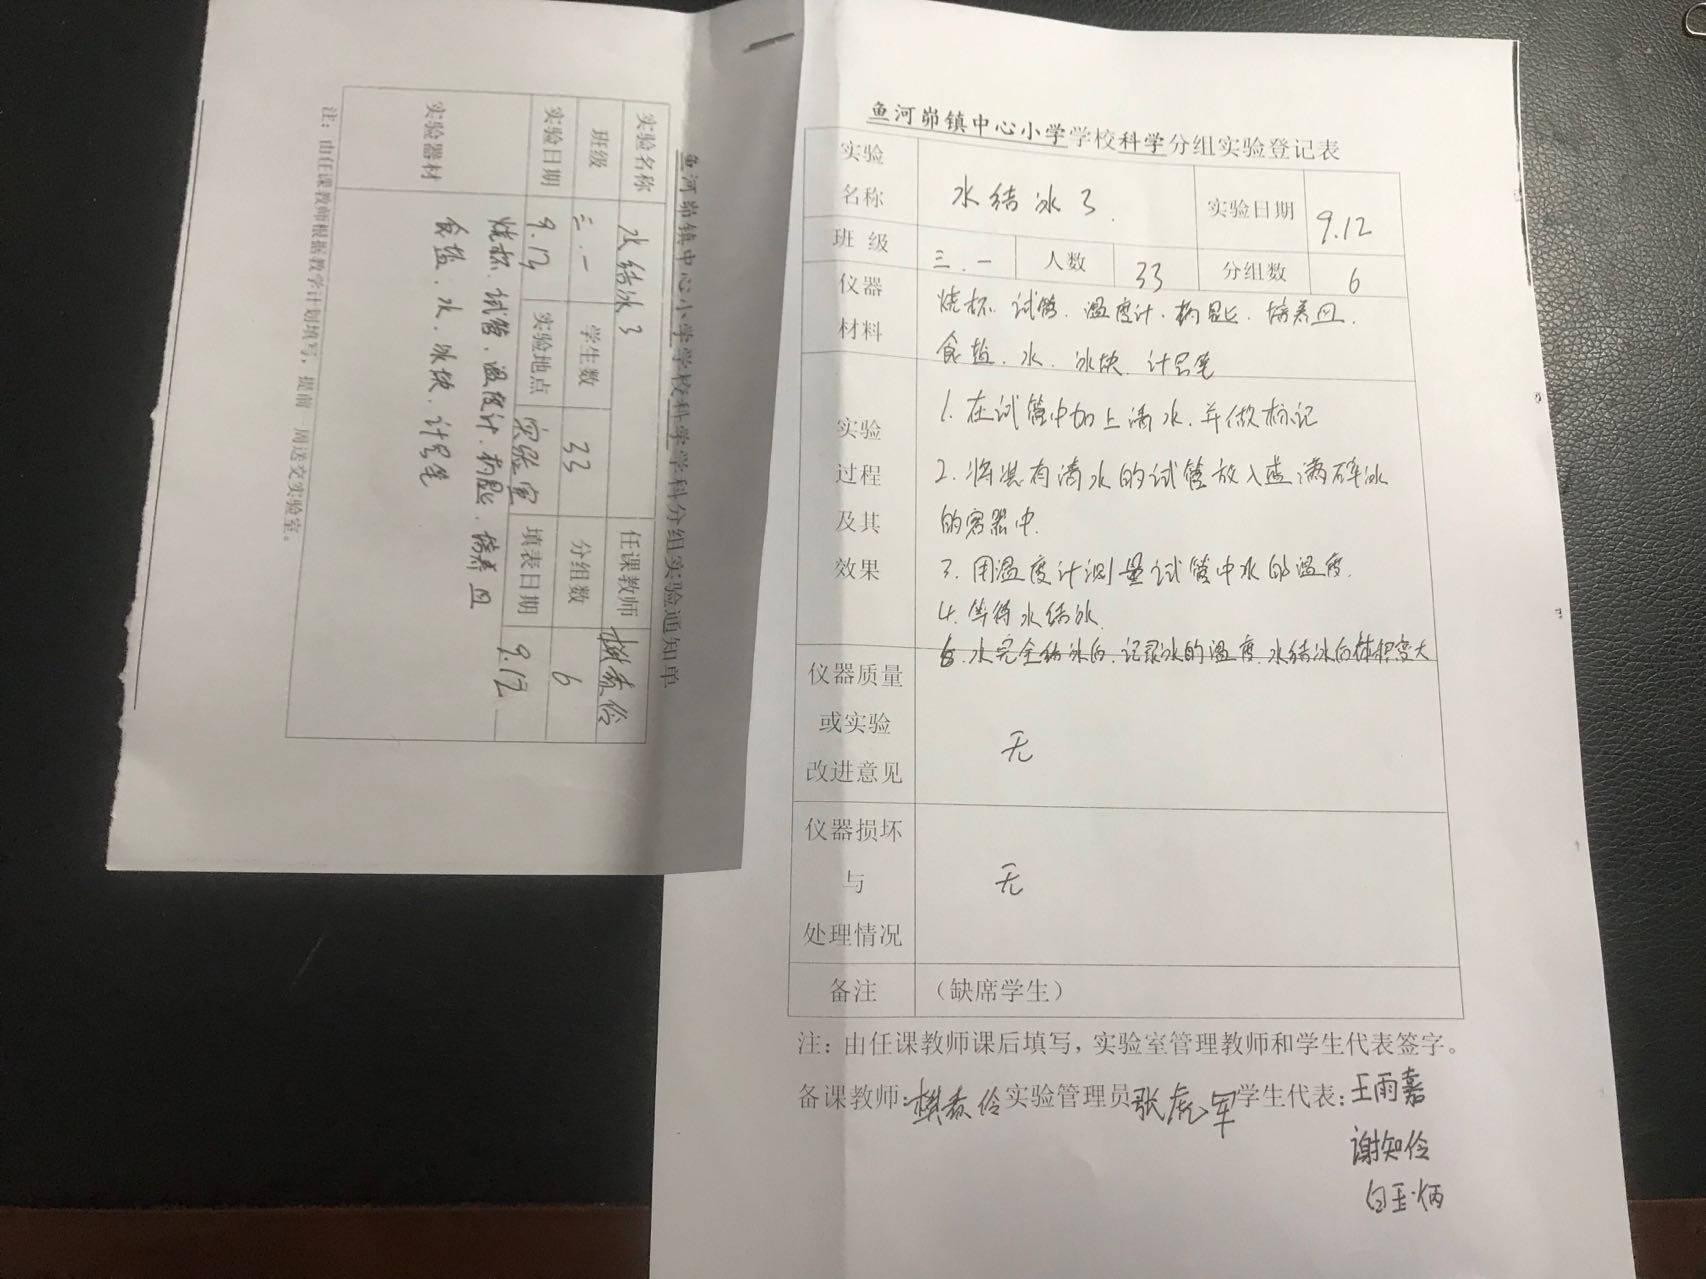 鱼河峁镇中心小学学校科学学科分组实验通知单
实验名称 水结冰了 任课教师
班级 三.一 学生数 33 分组数 6
实验日期 9.12 实验地点 实验室 填表日期 9.12
实验器材 烧杯、试管、温度计、药匙、培养皿
食盐、水、冰块、计号笔
注：由任课教师根据教学计划填写，提前一周送交实验室。
鱼河峁镇中心小学学校科学分组实验登记表
实验名称 水结冰了. 实验日期 9.12
班 级 三.一 人数 33 分组数 6
仪器材料 烧杯、试管、温度计、药匙、培养皿、
食盐、水、冰块、计号笔
实验过程及其效果
1. 在试管中加上清水,并做标记
2. 将装有清水的试管放入盛满碎冰
的容器中.
3. 用温度计测量试管中水的温度.
4. 等待水结冰.
5. 水完全结冰后.记录冰的温度.水结冰后体积变大
仪器质量或实验改进意见 无
仪器损坏与处理情况 无
备注 （缺席学生）
注：由任课教师课后填写，实验室管理教师和学生代表签字。
备课教师: 实验管理员 张虎军 学生代表: 王雨嘉
谢知伶
白玉炳